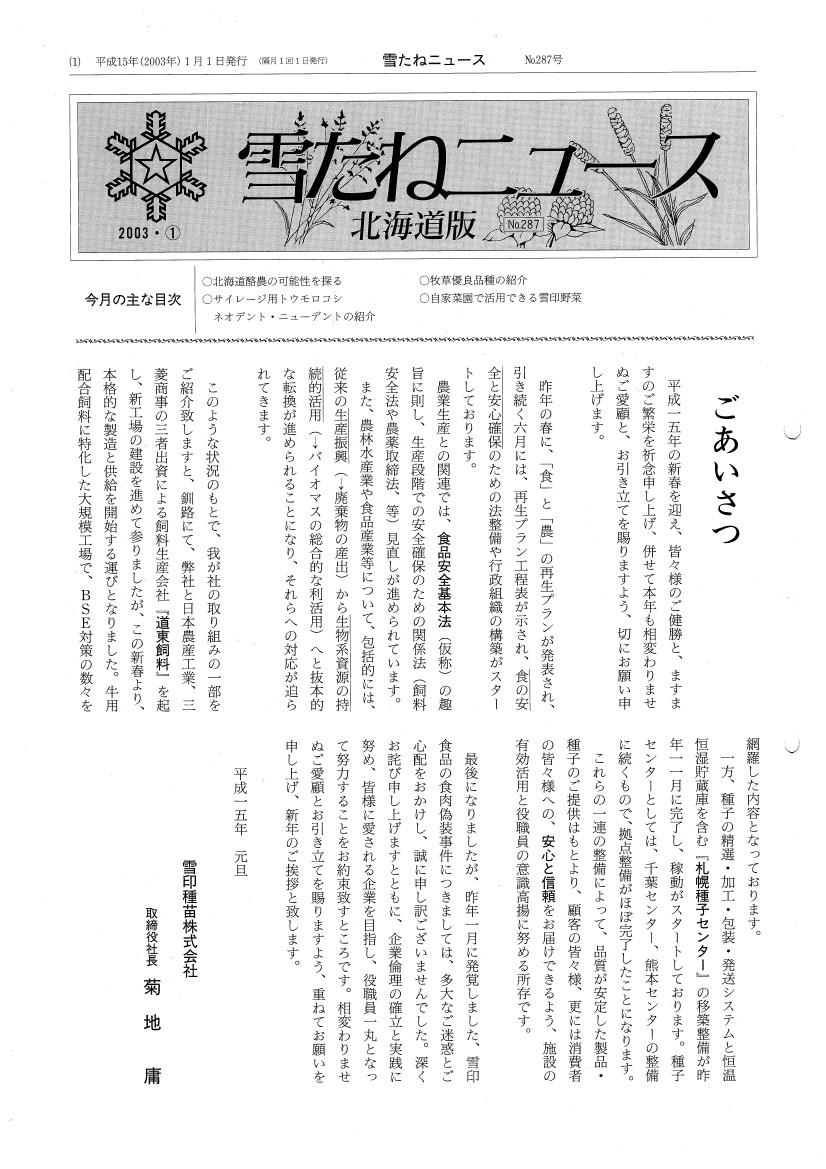 (1) 平成15年(2003年)1月1日発行 (隔月1回1日発行) 雪たねニュース №287号
雪たねニュース
北海道版
№287
2003・①
今月の主な目次
○北海道酪農の可能性を探る
○サイレージ用トウモロコシ
ネオデント・ニューデントの紹介
○牧草優良品種の紹介
○自家菜園で活用できる雪印野菜
ごあいさつ
平成一五年の新春を迎え、皆々様のご健勝と、ますま
すのご繁栄を祈念申し上げ、併せて本年も相変わりませ
ぬご愛顧と、お引き立てを賜りますよう、切にお願い申
し上げます。
昨年の春に、「食」と「農」の再生プランが発表され、
引き続く六月には、再生プラン工程表が示され、食の安
全と安心確保のための法整備や行政組織の構築がスター
トしております。
農業生産との関連では、食品安全基本法（仮称）の趣
旨に則し、生産段階での安全確保のための関係法（飼料
安全法や農薬取締法、等）見直しが進められています。
また、農林水産業や食品産業等について、包括的には、
従来の生産振興（→廃棄物の産出）から生物系資源の持
続的活用（→バイオマスの総合的な利活用）へと抜本的
な転換が進められることになり、それらへの対応が迫ら
れてきます。
このような状況のもとで、我が社の取り組みの一部を
ご紹介致しますと、釧路にて、弊社と日本農産工業、三
菱商事の三者出資による飼料生産会社『道東飼料』を起
し、新工場の建設を進めて参りましたが、この新春より、
本格的な製造と供給を開始する運びとなりました。牛用
配合飼料に特化した大規模工場で、ＢＳＥ対策の数々を
網羅した内容となっております。
一方、種子の精選・加工・包装・発送システムと恒温
恒湿貯蔵庫を含む『札幌種子センター』の移築整備が昨
年一一月に完了し、稼動がスタートしております。種子
センターとしては、千葉センター、熊本センターの整備
に続くもので、拠点整備がほぼ完了したことになります。
これらの一連の整備によって、品質が安定した製品・
種子のご提供はもとより、顧客の皆々様、更には消費者
の皆々様への、安心と信頼をお届けできるよう、施設の
有効活用と役職員の意識高揚に努める所存です。
最後になりましたが、昨年一月に発覚しました、雪印
食品の食肉偽装事件につきましては、多大なご迷惑とご
心配をおかけし、誠に申し訳ございませんでした。深く
お詫び申し上げますとともに、企業倫理の確立と実践に
努め、皆様に愛される企業を目指し、役職員一丸となっ
て努力することをお約束致すところです。相変わりませ
ぬご愛顧とお引き立てを賜りますよう、重ねてお願いを
申し上げ、新年のご挨拶と致します。
平成一五年 元旦
雪印種苗株式会社
取締役社長 菊地 庸